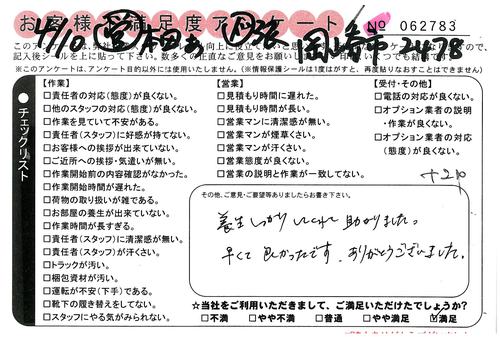 お客様満足度アンケート
No 062783
4/10
岡崎市 2478
記入後シールを上に貼って下さい。数多くの正直なご意見をお願いし
※このアンケートは、アンケート目的以外には使用いたしません。(※情報保護シールは1度はがすと、再度貼りなおすことはできません)
チェックリスト
【作業】
□責任者の対応(態度)が良くない。
□他のスタッフの対応(態度)が良くない。
□作業を見ていて不安がある。
□責任者(スタッフ)に好感が持てない。
□お客様への挨拶が出来ていない。
□ご近所への挨拶・気遣いが無い。
□作業開始前の内容確認がなかった。
□作業開始時間が遅れた。
□荷物の取り扱いが雑である。
□お部屋の養生が出来ていない。
□作業時間が長すぎる。
□責任者(スタッフ)に清潔感が無い。
□責任者(スタッフ)が汗くさい。
□トラックが汚い。
□梱包資材が汚い。
□運転が不安(下手)である。
□靴下の履き替えをしてない。
□スタッフにやる気がみられない。
【営業】
□見積もり時間に遅れた。
□見積もり時間が長い。
□営業マンに清潔感が無い。
□営業マンが煙草くさい。
□営業マンが汗くさい。
□営業態度が良くない。
□営業の説明と作業が一致してない。
【受付・その他】
□電話の対応が良くない。
□オプション業者の説明
・作業が良くない。
□オプション業者の対応
(態度)が良くない。
+2p
その他、ご意見・ご要望等ありましたらお書き下さい。
養生しっかりしてくれて助かりました。
早くて良かったです。ありがとうございました。
☆当社をご利用いただきまして、ご満足いただけたでしょうか?
□不満 □やや不満 □普通 □やや満足 ☑満足